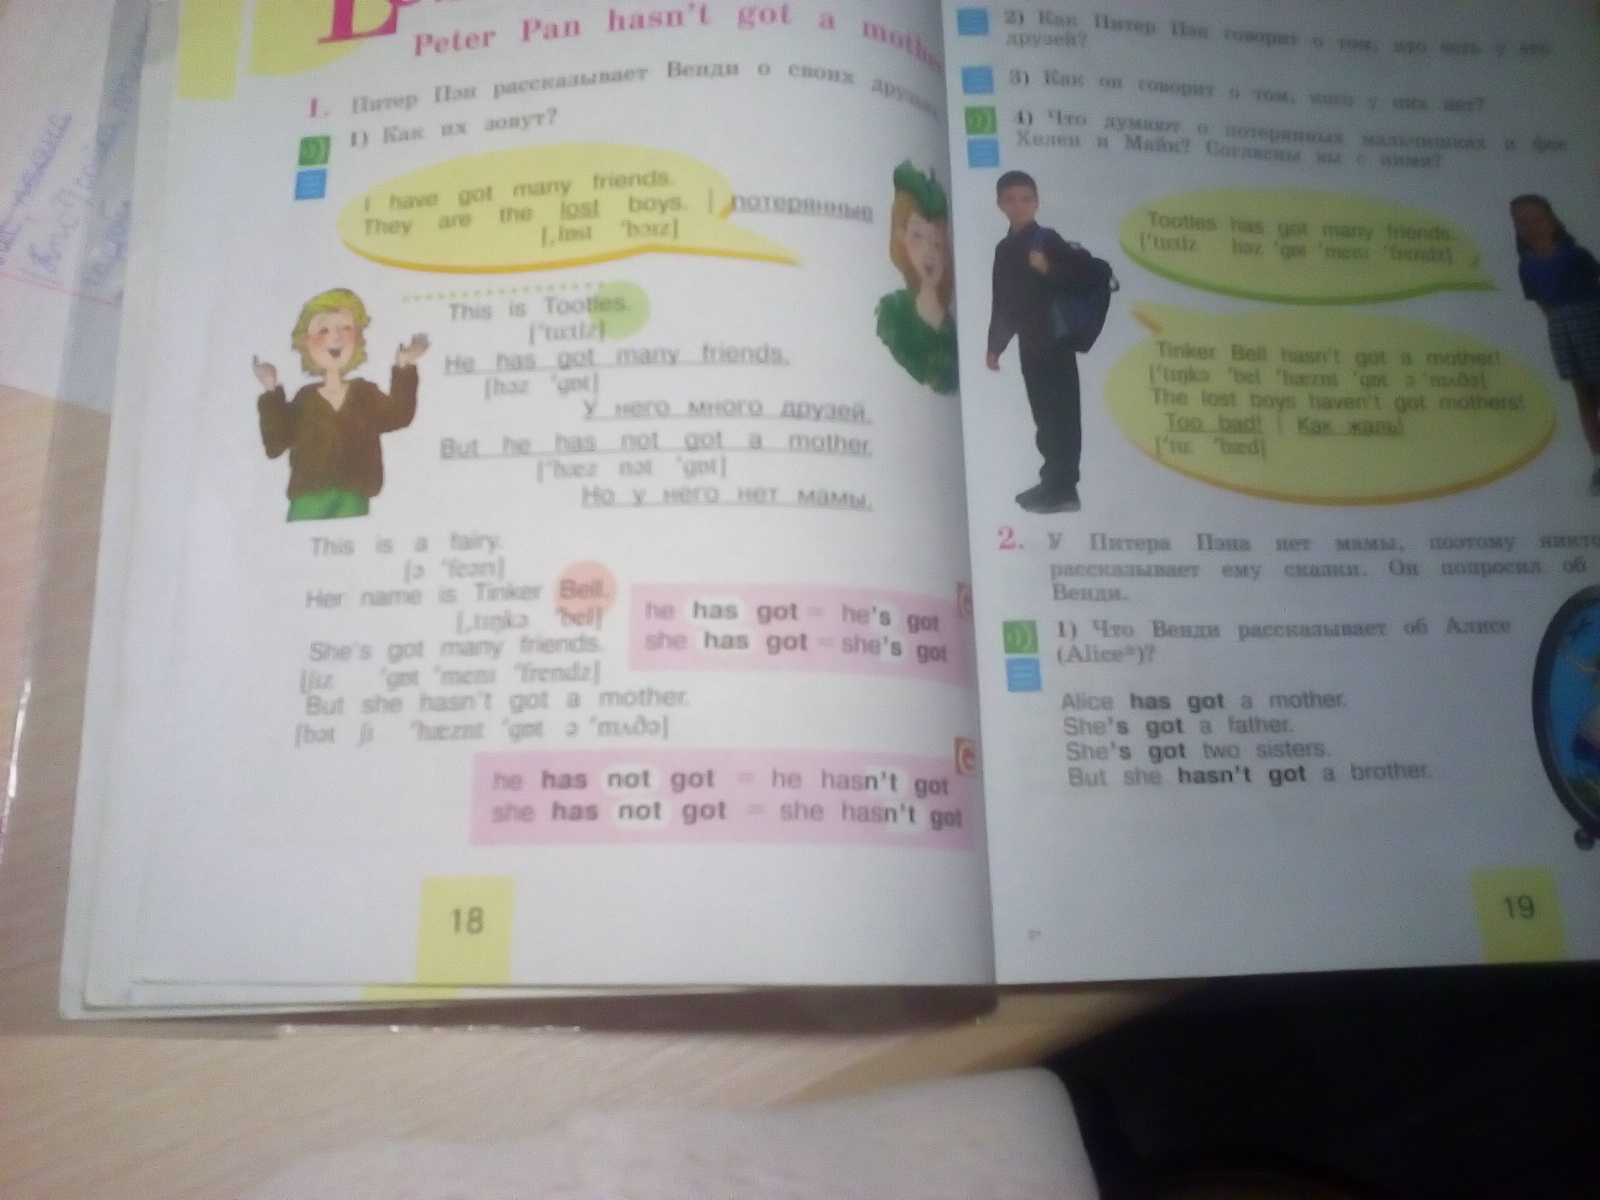 Peter Pan hasn't got a mother
1. Питер Пэн рассказывает Венди о своих друзьях.
1) Как их зовут?
I have got many friends.
They are the lost boys. | потерянные
[ˌlɒst ˈbɔɪz]
This is Tootles.
[ˈtuːtlz]
He has got many friends.
[həz ˈgɒt]
У него много друзей.
But he has not got a mother.
[ˈhæz nət ˈgɒt]
Но у него нет мамы.
This is a fairy.
[ə ˈfeərɪ]
Her name is Tinker Bell.
[ˌtɪŋkə ˈbel]
She's got many friends.
[ʃɪz ˈgɒt ˈmenɪ ˈfrendz]
But she hasn't got a mother.
[bət ʃɪ ˈhæznt ˈgɒt ə ˈmʌðə]
he has got = he's got
she has got = she's got
G
he has not got = he hasn't got
she has not got = she hasn't got
G
18
2) Как Питер Пэн говорит о том, кто есть у его
друзей?
3) Как он говорит о том, кого у них нет?
4) Что думают о потерянных мальчишках и фее
Хелен и Майк? Согласны вы с ними?
Tootles has got many friends.
[ˈtuːtlz həz ˈgɒt ˈmenɪ ˈfrendz]
Tinker Bell hasn't got a mother!
[ˈtɪŋkə ˈbel ˈhæznt ˈgɒt ə ˈmʌðə]
The lost boys haven't got mothers!
Too bad! | Как жаль!
[ˈtuː ˈbæd]
2. У Питера Пэна нет мамы, поэтому никто
рассказывает ему сказки. Он попросил об
Венди.
1) Что Венди рассказывает об Алисе
(Alice*)?
Alice has got a mother.
She's got a father.
She's got two sisters.
But she hasn't got a brother.
19